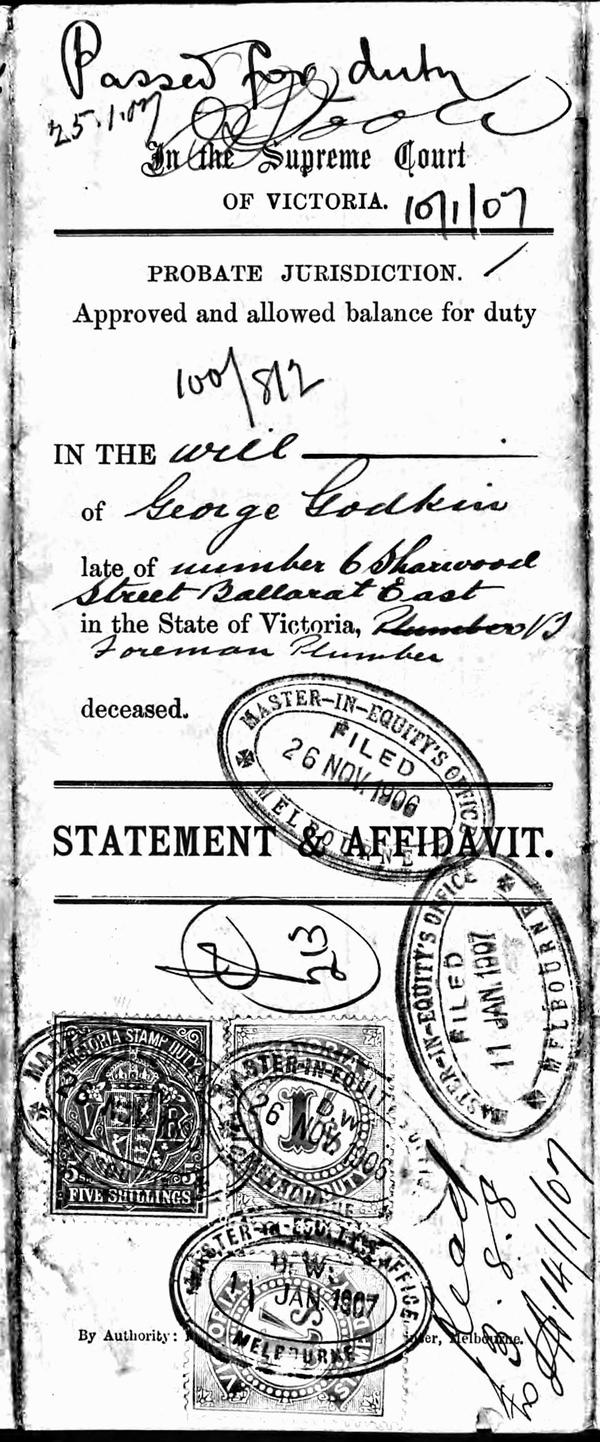 Passed for duty
25.1.07
In the Supreme Court
OF VICTORIA. 10/1/07
PROBATE JURISDICTION.
Approved and allowed balance for duty
100/8/2
IN THE will
of George Godkin
late of number 6 Sharwood
Street Ballarat East
in the State of Victoria, Plumber
Foreman Plumber
deceased.
MASTER-IN-EQUITY'S OFFICE
FILED
26 NOV. 1906
MELBOURNE
STATEMENT & AFFIDAVIT.
213
MASTER-IN-EQUITY'S OFFICE
FILED
11 JAN. 1907
MELBOURNE
VICTORIA STAMP DUTY
V R
5s 5s
FIVE SHILLINGS
MASTER-IN-EQUITY
D.W.
26 NOV. 1906
1/-
MASTER-IN-EQUITY'S OFFICE
D.W.
11 JAN. 1907
MELBOURNE
By Authority: Melbourne.
14/1/07